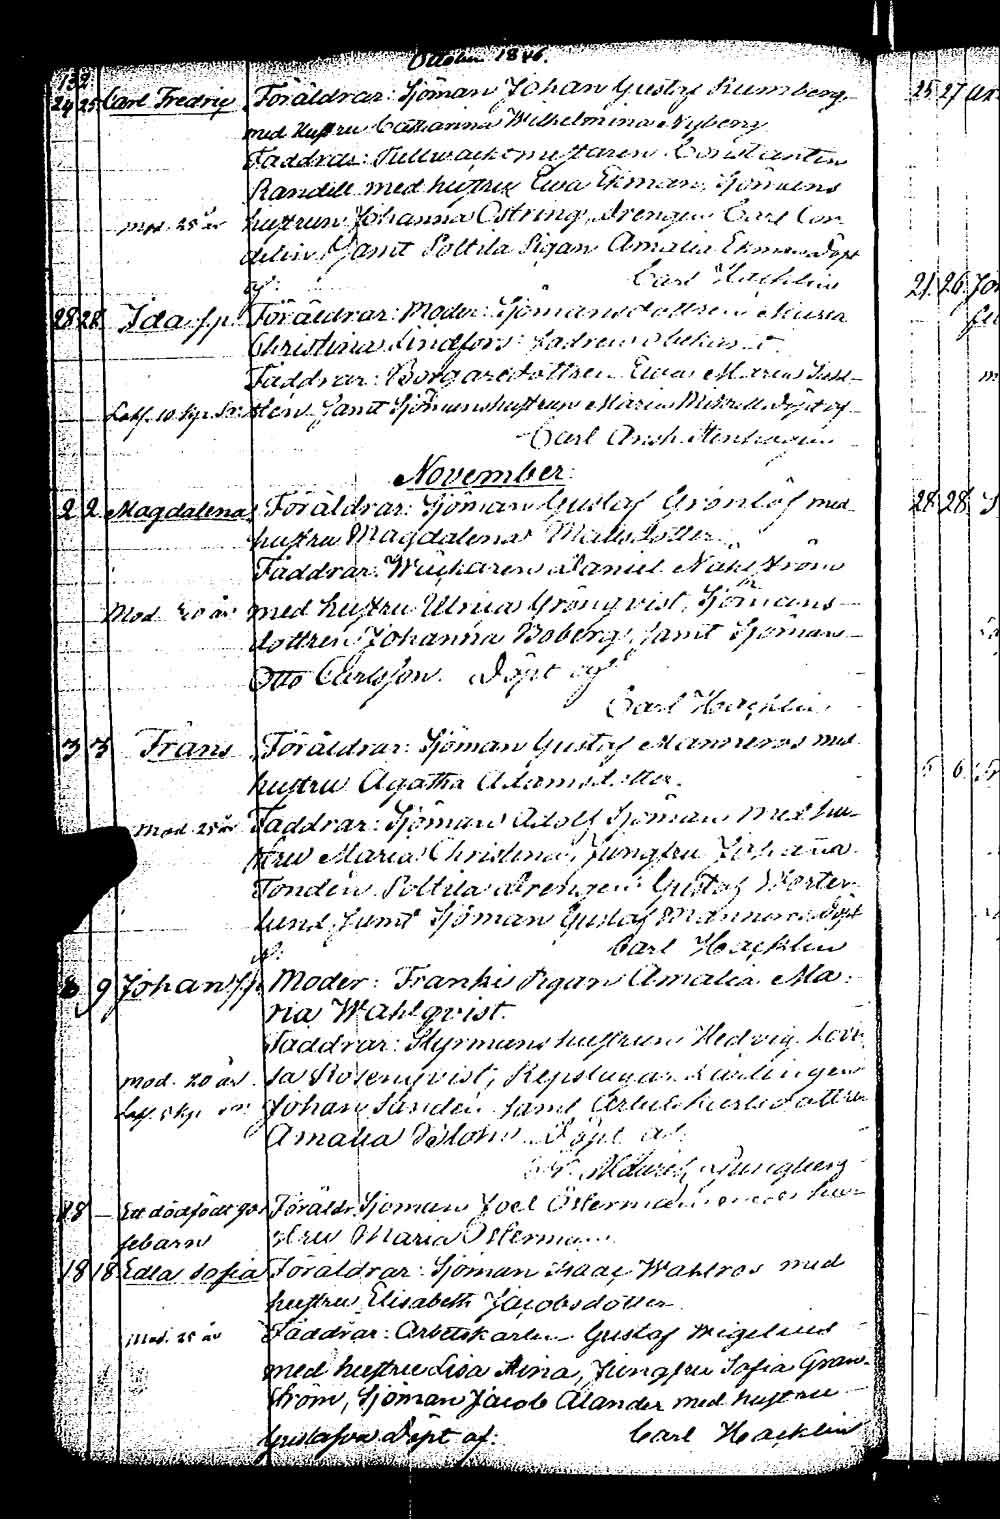 October 1846.
132
24 25 Carl Fredric Föräldrar: Sjöman Johan Gustaf Rumberg
med hustru Catharina Wilhelmina Nyberg
Faddrar: Tullwacktmästaren Constantin
Randell med hustru Ewa Ekman, Sjömans
mod. 25 år hustrun Johanna Östring, drengen Carl Cor
delin, Samt Poltila Pigan Amalia Ekman Döpt
af: Carl Hacklin
28 28 Ida f/p Föräldrar: Moder: Sjömansdottren Maria
Christina Lindfors fadren obekant.
Faddrar: Borgaredottren Ewa Maria
lén Samt Sjömanshustrun Maria Döpt af
Carl Stenhagen
November
2 2 Magdalena Föräldrar: Sjöman Gustaf Grönlöf med
hustru Magdalena Matsdotter.
Faddrar: Wäckaren Daniel Nählström
Mod 20 år med hustru Ulrica Grönqvist, Sjömans
dottren Johanna Boberg, Samt Sjöman
Otto Carlsson. Döpt af
Carl Hacklin
3 3 Frans Föräldrar: Sjöman Gustaf Manneros med
hustru Agatha Adamsdotter.
mod 25 år Faddrar: Sjöman Adolf Sjöman med hu-
stru Maria Christina, Jungfru Johanna
Tondén Poltila drengen Gustaf Wester
lund Samt Sjöman Gustaf Manneros Döpt
af: Carl Hacklin
8 9 Johan f/p Moder: Franki Pigan Amalia Ma-
ria Wahlqvist.
Faddrar: Styrmans hustrun Hedvig Lovi
mod. 20 år sa Rosenqvist, Repslagar Lärlingen
Johan Sandén samt Arbetskarlsdottren
Amalia Blom Döpt af
Ljungberg
18 — Ett dödfödt gos Föräldr. Sjöman Joel Österman med hu-
sebarn stru Maria Österman.
18 18 Edla Sofia Föräldrar: Sjöman Isaac Wahlros med
hustru Elisabeth Jacobsdotter
Mod. 25 år Faddrar: Arbetskarlen Gustaf Wigelius
med hustru Lisa Stina, Jungfru Sofia Gran-
ström, Sjöman Jacob Ålander med hustru
Gustafva Döpt af: Carl Hacklin
25 27
21 26
28 28
5 6